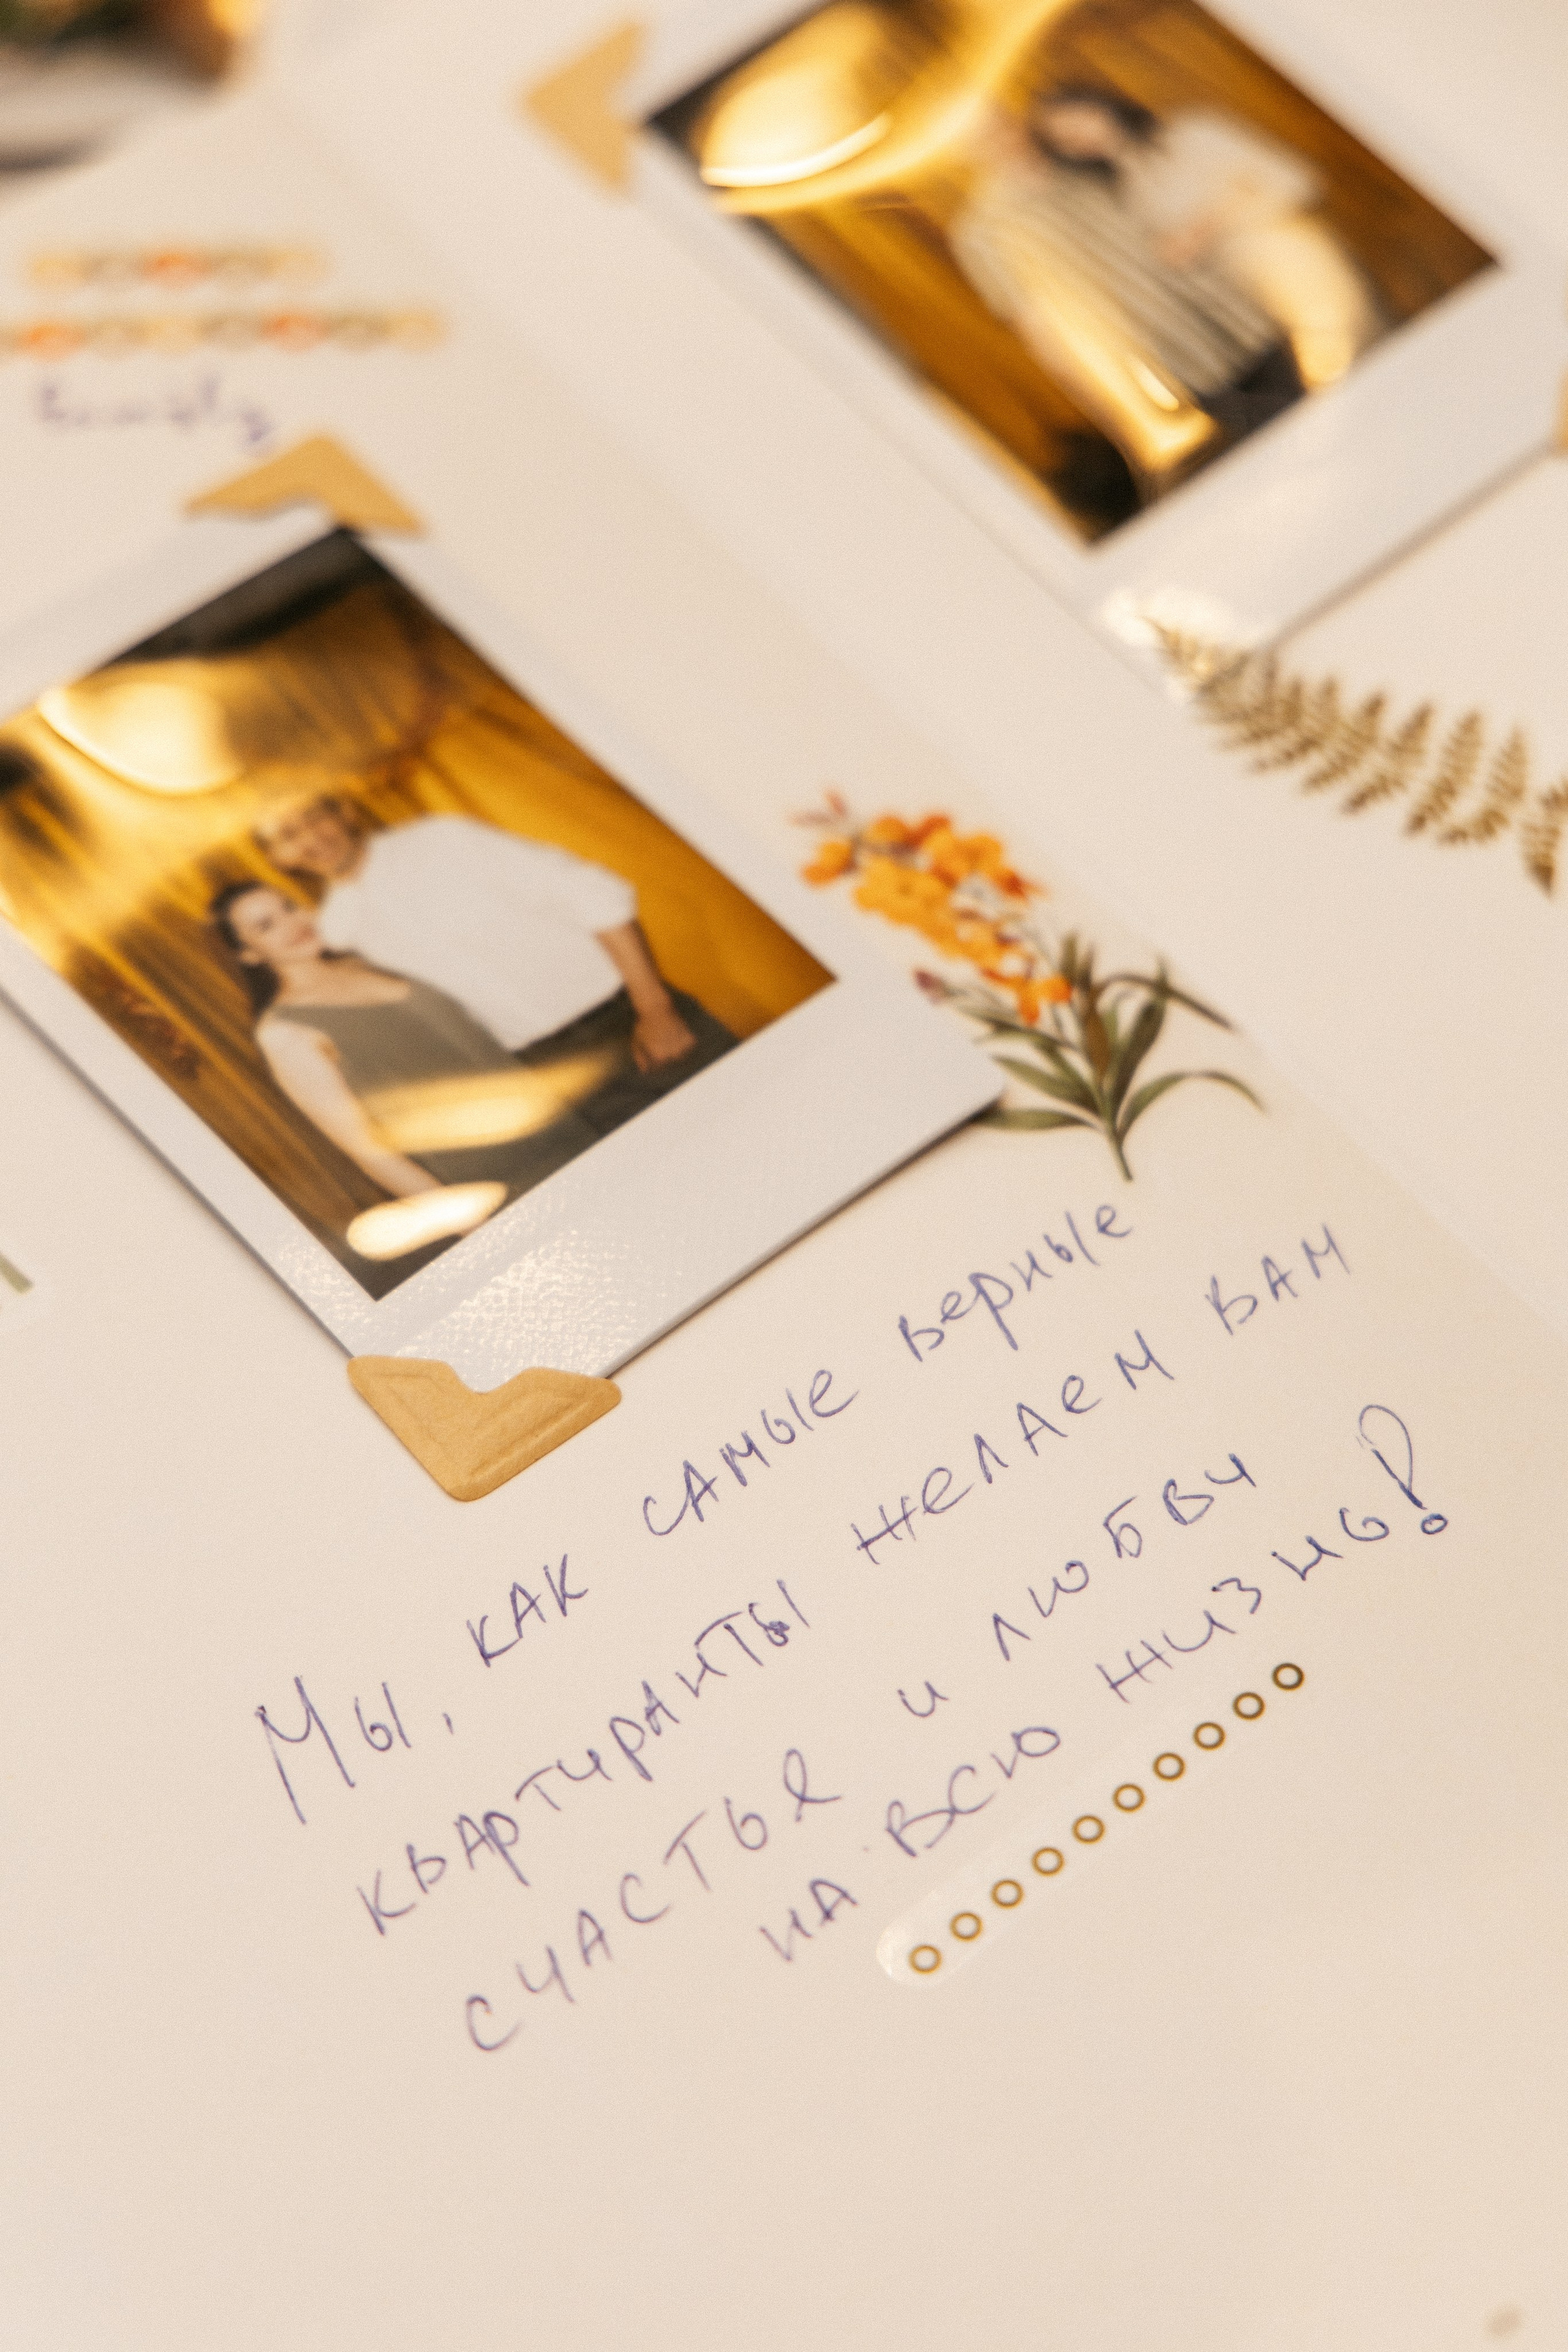 Мы, как самые верные
квартиранты желаем вам
счастья и любви
на всю жизнь!